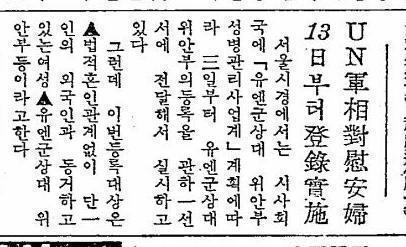 UN軍相對慰安婦
13日부터登錄實施
서울시경에서는 시사회
국에「유엔군상대 위안부
성병관리사업계」계획에따
라 一三일부터 유엔군상대
위안부의등록을 관하一선
서에 전달해서 실시하고
있다
그런데 이번등록대상은
▲법적혼인관계없이 단一
인의 외국인과 동거하고
있는여성▲유엔군상대 위
안부등이라고한다